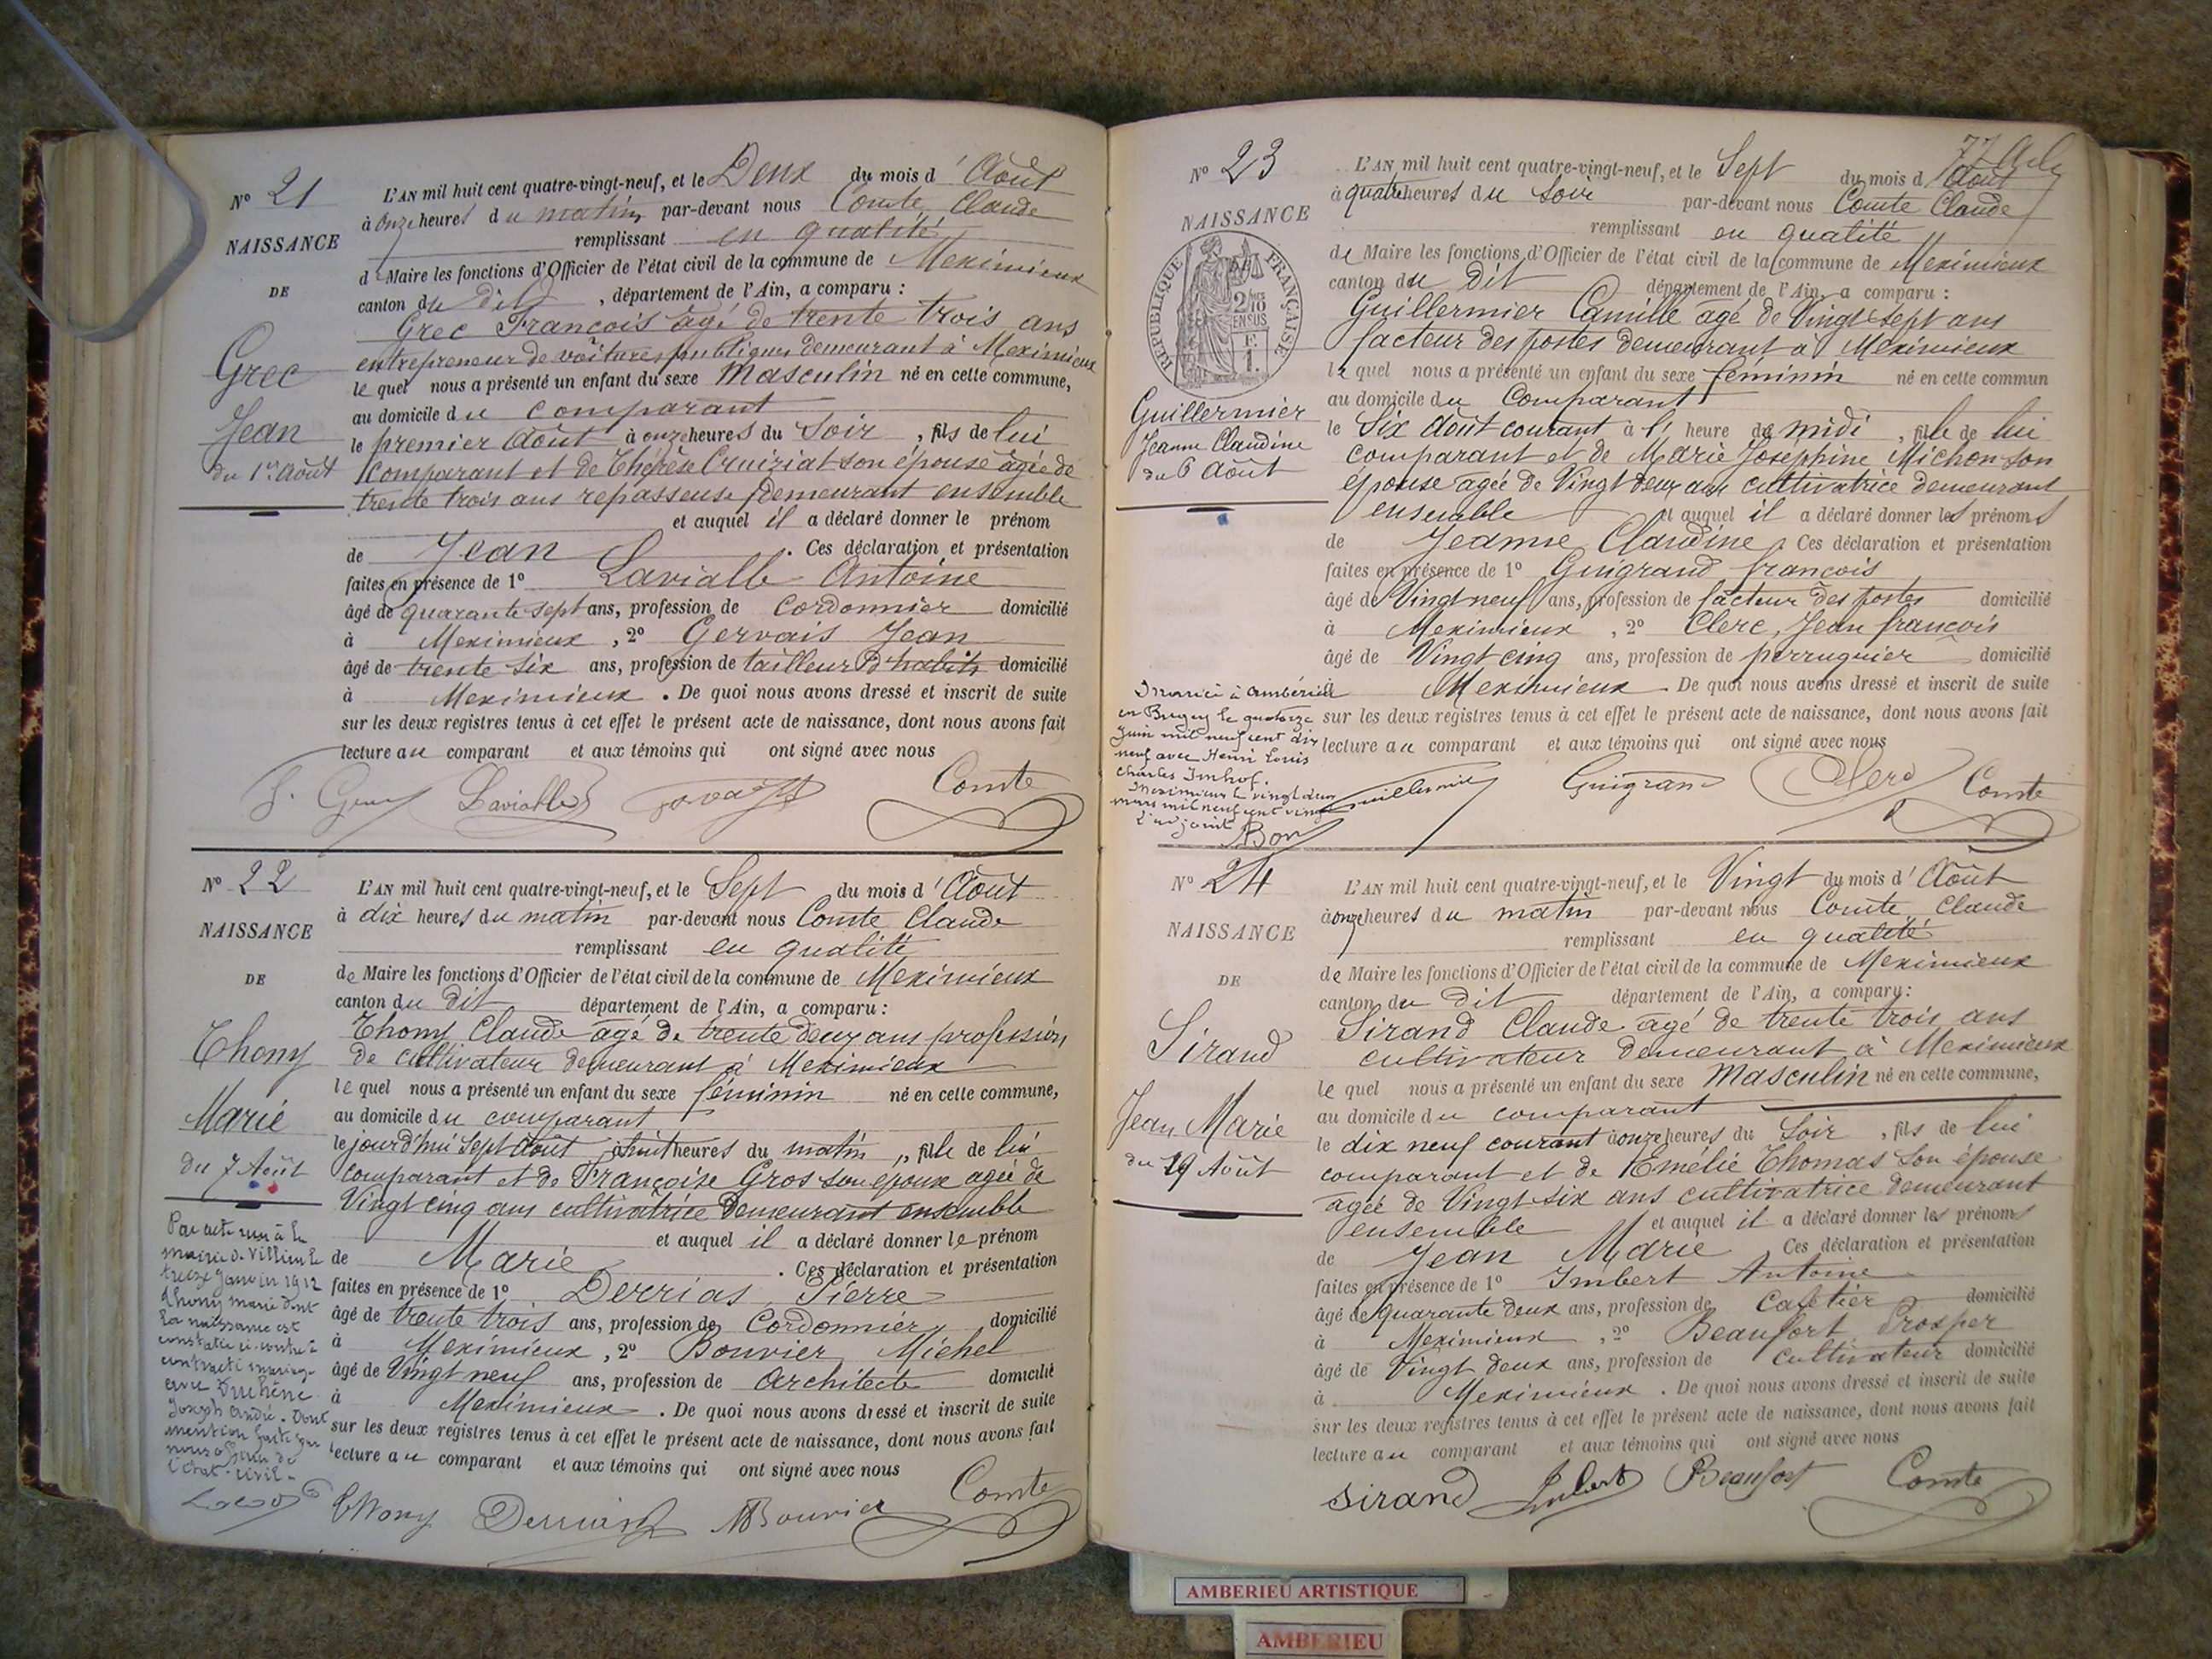 N° 21
NAISSANCE
DE
Grec
Jean
du 1er Août
L'AN mil huit cent quatre-vingt-neuf, et le Deux du mois d'Août
à onze heures du matin, par-devant nous Comte Claude
remplissant en qualité
d Maire les fonctions d'Officier de l'état civil de la commune de Meximieux
canton du dit, département de l'Ain, a comparu :
Grec François âgé de trente trois ans
entrepreneur de voitures publiques demeurant à Meximieux
le quel nous a présenté un enfant du sexe Masculin né en cette commune,
au domicile du comparant
le premier Août à onze heures du soir, fils de lui
comparant et de Thérèse Cruiziat son épouse âgée de
trente trois ans repasseuse demeurant ensemble
et auquel il a déclaré donner le prénom
de Jean. Ces déclaration et présentation
faites en présence de 1° Lavialle Antoine
âgé de quarante sept ans, profession de Cordonnier domicilié
à Meximieux, 2° Gervais Jean
âgé de trente six ans, profession de tailleur d'habits domicilié
à Meximieux. De quoi nous avons dressé et inscrit de suite
sur les deux registres tenus à cet effet le présent acte de naissance, dont nous avons fait
lecture au comparant et aux témoins qui ont signé avec nous
Lavialle Comte
N° 22
NAISSANCE
DE
Thony
Marie
du 7 Août
L'AN mil huit cent quatre-vingt-neuf, et le Sept du mois d'Août
à dix heures du matin par-devant nous Comte Claude
remplissant en qualité
de Maire les fonctions d'Officier de l'état civil de la commune de Meximieux
canton du dit département de l'Ain, a comparu :
Thony Claude âgé de trente deux ans profession
de cultivateur demeurant à Meximieux
le quel nous a présenté un enfant du sexe féminin né en cette commune,
au domicile du comparant
le jourd'hui Sept Août à huit heures du matin, fille de lui
comparant et de Françoise Gros son épouse agée de
Vingt cinq ans cultivatrice demeurant ensemble
et auquel il a déclaré donner le prénom
de Marie. Ces déclaration et présentation
faites en présence de 1° Derrias Pierre
âgé de trente trois ans, profession de Cordonnier domicilié
à Meximieux, 2° Bouvier Michel
âgé de Vingt neuf ans, profession de Architecte domicilié
à Meximieux. De quoi nous avons dressé et inscrit de suite
sur les deux registres tenus à cet effet le présent acte de naissance, dont nous avons fait
lecture au comparant et aux témoins qui ont signé avec nous
Par acte reçu à la
mairie de Villieu le
treize Janvier 1912
Thony marie dont
la naissance est
constatée ci-contre à
contracté mariage
avec Duchêne
Joseph André. Dont
mention faite par
nous officier de
l'état-civil.
Thony Derrias MBouvier Comte
77
N° 23
NAISSANCE
REPUBLIQUE FRANÇAISE
2/10
EN SUS
1 F.
Guillermier
Jeanne Claudine
du 6 Août
L'AN mil huit cent quatre-vingt-neuf, et le Sept du mois d'Août
à quatre heures du soir par-devant nous Comte Claude
remplissant en qualité
de Maire les fonctions d'Officier de l'état civil de la commune de Meximieux
canton du Dit département de l'Ain, a comparu :
Guillermier Camille agé de Vingt sept ans
facteur des postes demeurant à Meximieux
le quel nous a présenté un enfant du sexe féminin né en cette commun
au domicile du Comparant
le Six Août courant à l' heure de midi, fille de lui
comparant et de Marie Josephine Michon son
épouse agée de Vingt deux ans cultivatrice demeurant
ensemble et auquel il a déclaré donner les prénoms
de Jeanne Claudine. Ces déclaration et présentation
faites en présence de 1° Guigrand françois
âgé de Vingt neuf ans, profession de facteur des postes domicilié
à Meximieux, 2° Clerc, Jean françois
âgé de Vingt cinq ans, profession de perruquier domicilié
Meximieux. De quoi nous avons dressé et inscrit de suite
sur les deux registres tenus à cet effet le présent acte de naissance, dont nous avons fait
lecture au comparant et aux témoins qui ont signé avec nous
marié à Ambérieu
en Bugey le quatorze
juin mil neuf cent dix
neuf avec Henri Louis
Charles Imhof.
Meximieux le vingt deux
mars mil neuf cent vingt
L'adjoint
Bon
Guillermier Guigrand Clerc Comte
N° 24
NAISSANCE
DE
Sirand
Jean Marie
du 19 Août
L'AN mil huit cent quatre-vingt-neuf, et le Vingt du mois d'Août
à onze heures du matin par-devant nous Comte Claude
remplissant en qualité
de Maire les fonctions d'Officier de l'état civil de la commune de Meximieux
canton du Dit département de l'Ain, a comparu :
Sirand Claude agé de trente trois ans
cultivateur demeurant à Meximieux
le quel nous a présenté un enfant du sexe Masculin né en cette commune,
au domicile du comparant
le dix neuf courant à onze heures du Soir, fils de lui
comparant et de Emélie Thomas son épouse
agée de Vingt six ans cultivatrice demeurant
ensemble et auquel il a déclaré donner les prénoms
de Jean Marie Ces déclaration et présentation
faites en présence de 1° Imbert Antoine
âgé de quarante deux ans, profession de Cafetier domicilié
à Meximieux, 2° Beaufort Prosper
âgé de Vingt deux ans, profession de Cultivateur domicilié
à Meximieux. De quoi nous avons dressé et inscrit de suite
sur les deux registres tenus à cet effet le présent acte de naissance, dont nous avons fait
lecture au comparant et aux témoins qui ont signé avec nous
Sirand Imbert Beaufort Comte
AMBERIEU ARTISTIQUE
AMBERIEU